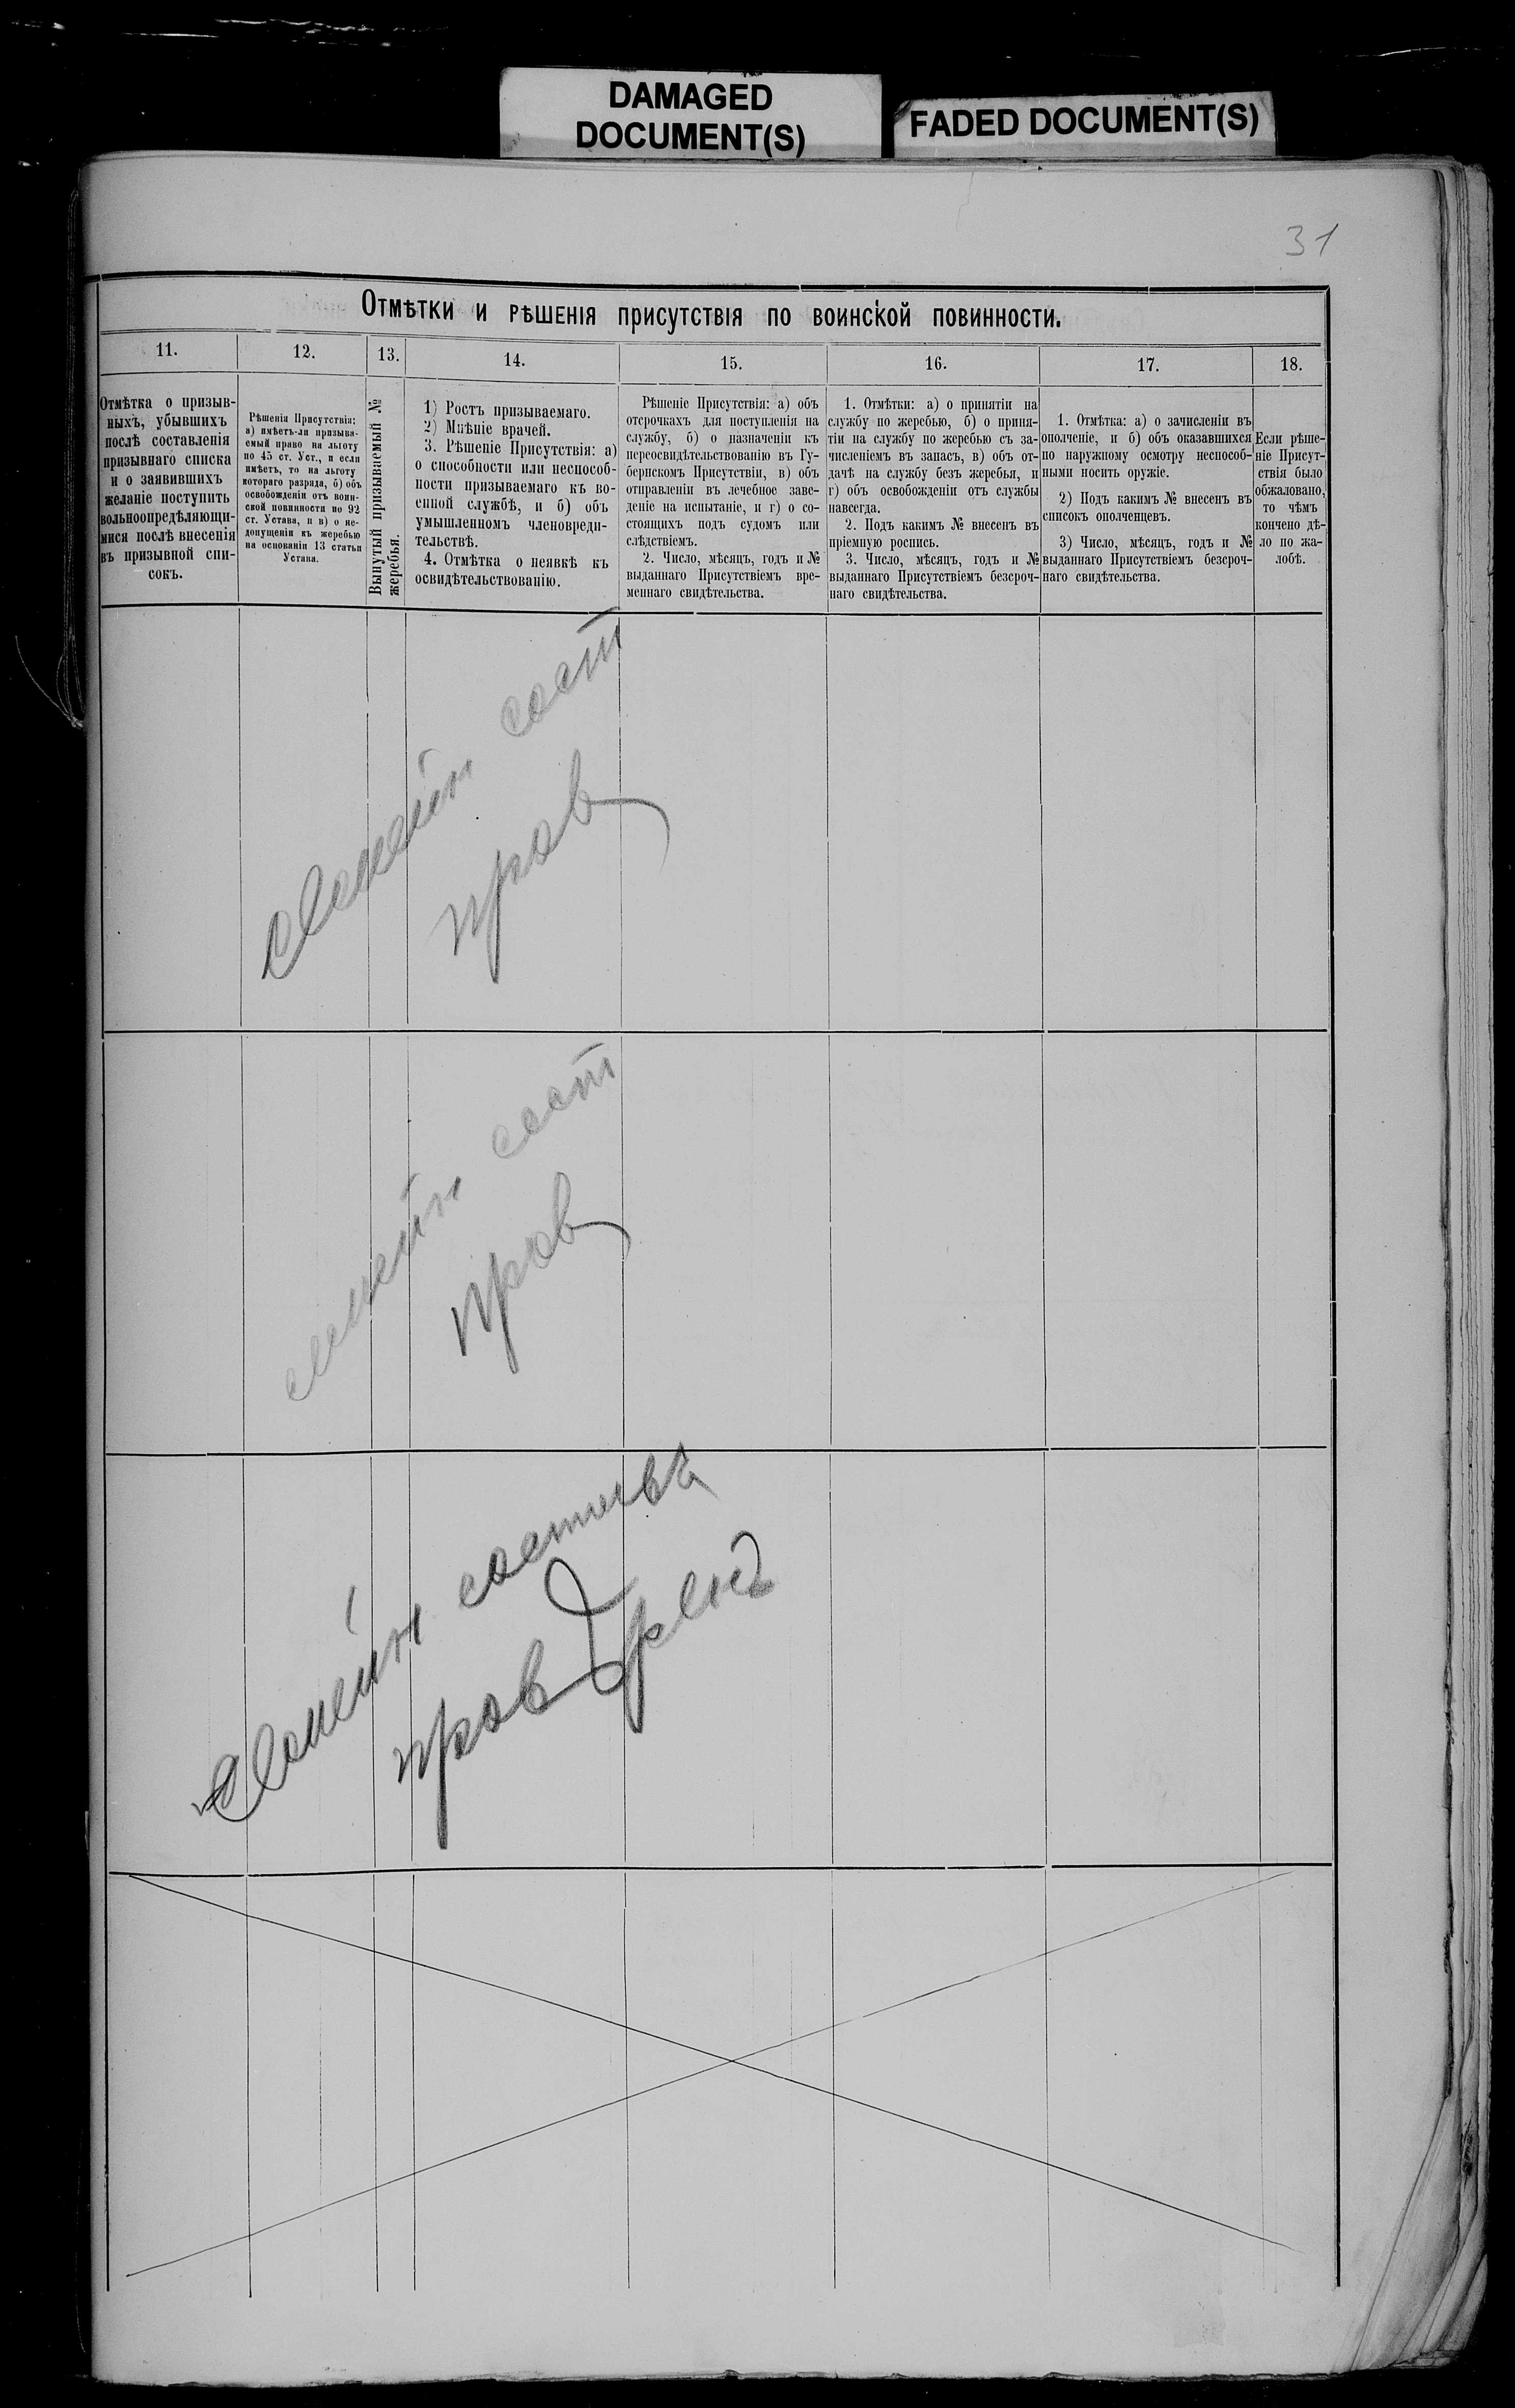 DAMAGED
DOCUMENT(S)
FADED DOCUMENT(S)
31
Отмѣтки и рѣшенія присутствія по воинской повинности.
11.
12.
13.
14.
15.
16.
17.
18.
Отмѣтка о призыв-
ныхъ, убывшихъ
послѣ составленія
призывнаго списка
и о заявившихъ
желаніе поступить
вольноопредѣляющи-
мися послѣ внесенія
въ призывной спи-
сокъ.
Рѣшенія Присутствія:
а) имѣетъ-ли призыва-
емый право на льготу
по 45 ст. Уст., и если
имѣетъ, то на льготу
котораго разряда, б) объ
освобожденіи отъ воин-
ской повинности по 92
ст. Устава, и в) о не-
допущеніи къ жеребью
на основаніи 13 статьи
Устава.
Вынутый призываемый №
жеребья.
1) Ростъ призываемаго.
2) Мнѣніе врачей.
3. Рѣшеніе Присутствія: а)
о способности или неспособ-
ности призываемаго къ во-
енной службѣ, и б) объ
умышленномъ членовреди-
тельствѣ.
4. Отмѣтка о неявкѣ къ
освидѣтельствованію.
Рѣшеніе Присутствія: а) объ
отсрочкахъ для поступленія на
службу, б) о назначеніи къ
переосвидѣтельствованію въ Гу-
бернскомъ Присутствіи, в) объ
отправленіи въ лечебное заве-
деніе на испытаніе, и г) о со-
стоящихъ подъ судомъ или
слѣдствіемъ.
2. Число, мѣсяцъ, годъ и №
выданнаго Присутствіемъ вре-
меннаго свидѣтельства.
1. Отмѣтки: а) о принятіи на
службу по жеребью, б) о приня-
тіи на службу по жеребью съ за-
численіемъ въ запасъ, в) объ от-
дачѣ на службу безъ жеребья, и
г) объ освобожденіи отъ службы
навсегда.
2. Подъ какимъ № внесенъ въ
пріемную роспись.
3. Число, мѣсяцъ, годъ и №
выданнаго Присутствіемъ безсроч-
наго свидѣтельства.
1. Отмѣтка: а) о зачисленіи въ
ополченіе, и б) объ оказавшихся
по наружному осмотру неспособ-
ными носить оружіе.
2) Подъ какимъ № внесенъ въ
списокъ ополченцевъ.
3) Число, мѣсяцъ, годъ и №
выданнаго Присутствіемъ безсроч-
наго свидѣтельства.
Если рѣше-
ніе Присут-
ствія было
обжаловано,
то чѣмъ
кончено дѣ-
ло по жа-
лобѣ.
семейн сост
пров
семейн сост
пров
Семейн составъ
пров